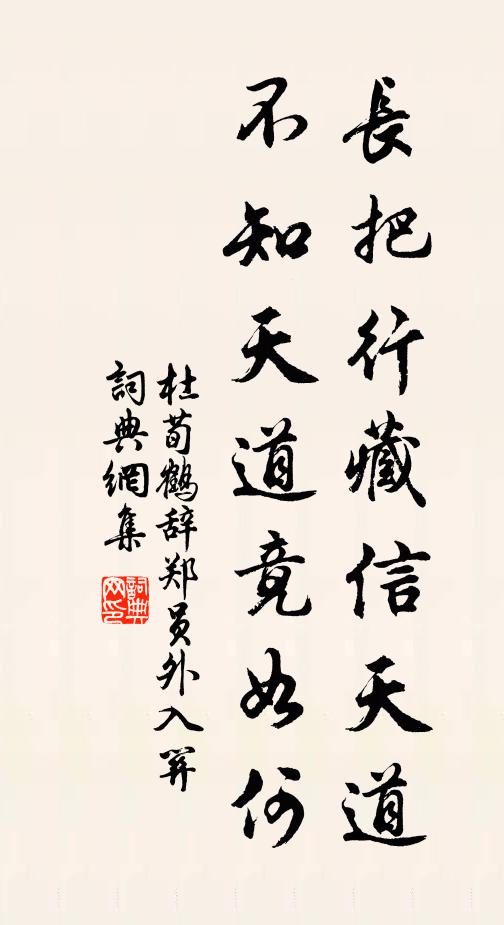 長把行藏信天道
不知天道竟如何
杜荀鶴辞郑員外入關
詞典網集
詞典网印